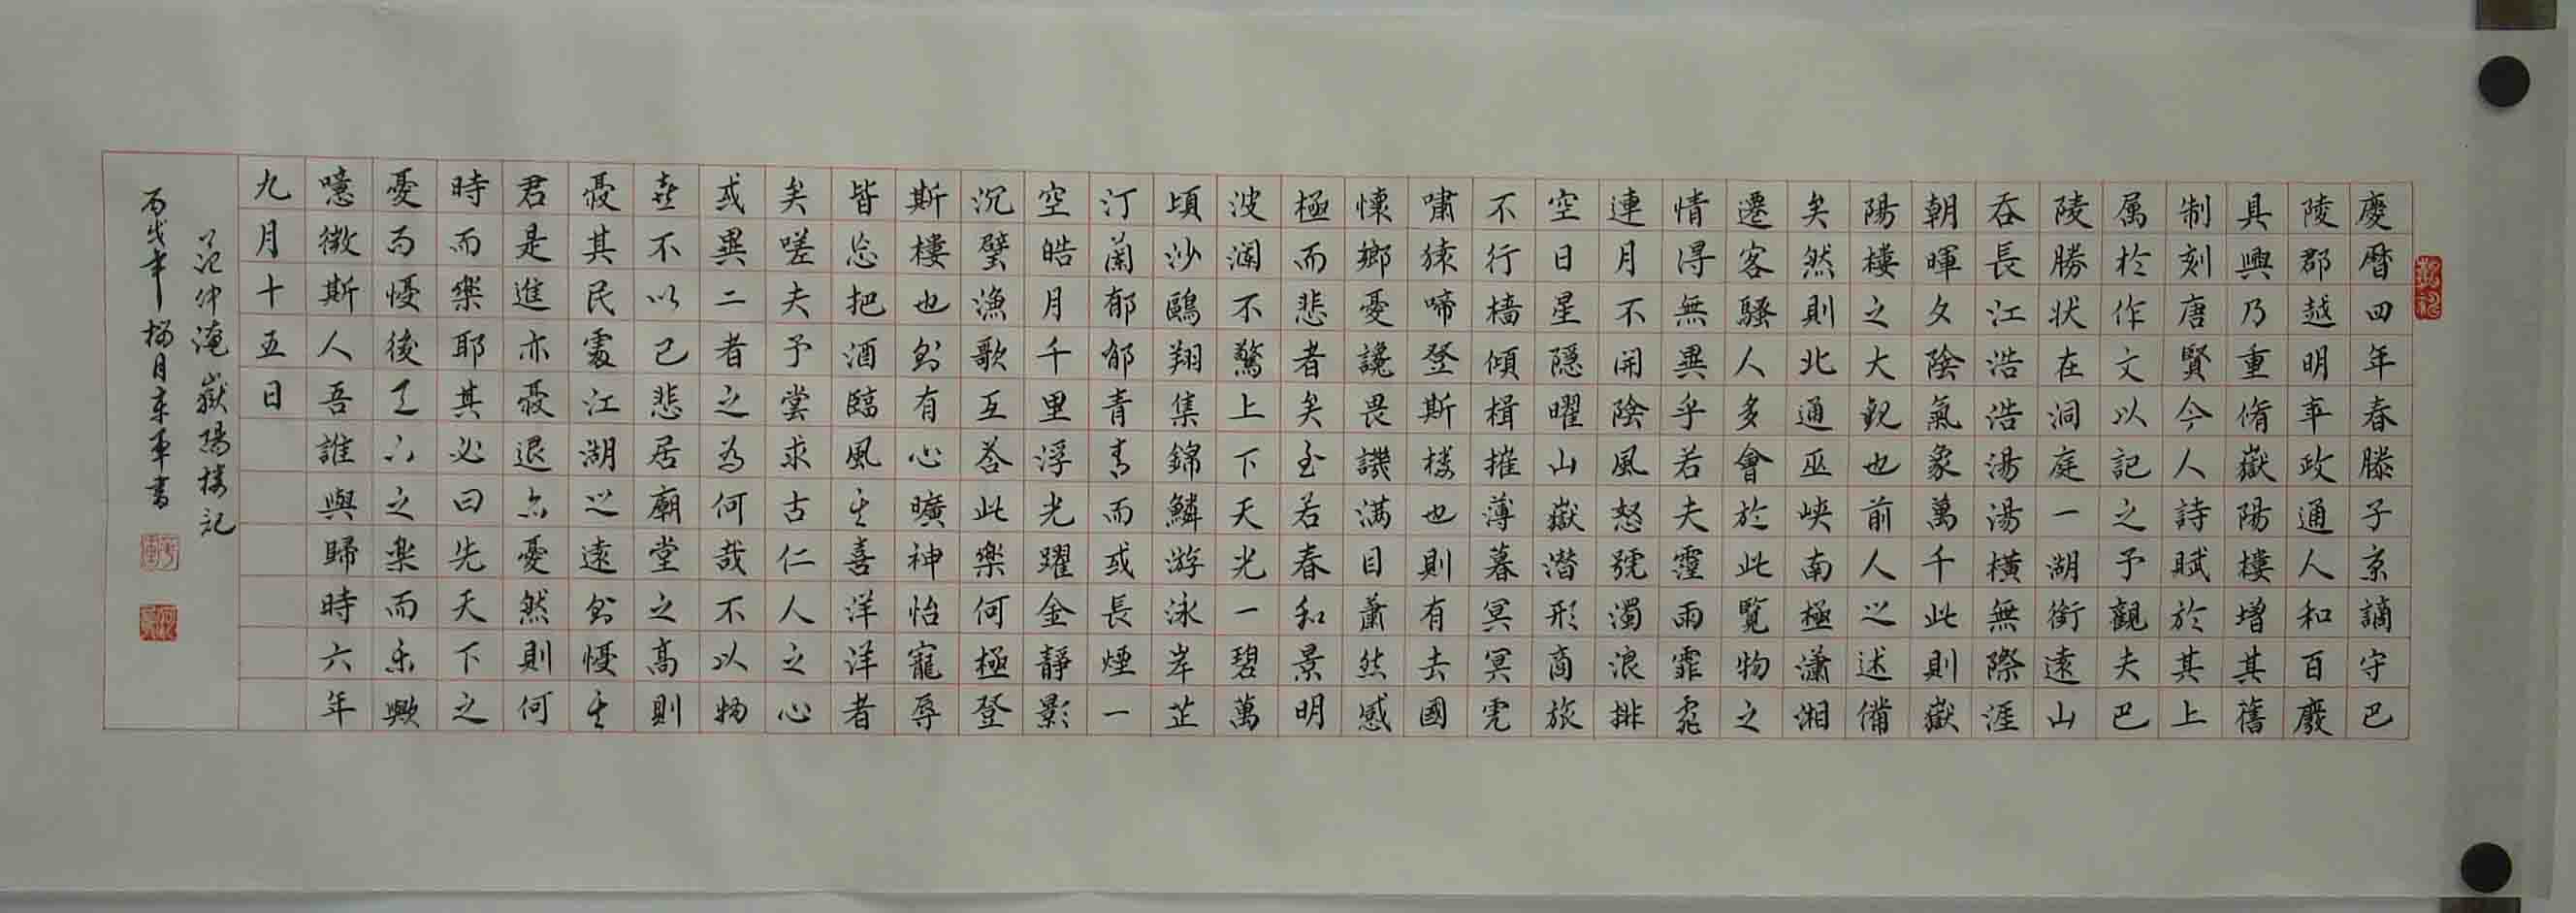 慶曆四年春滕子京謫守巴
陵郡越明年政通人和百廢
具興乃重脩嶽陽樓增其舊
制刻唐賢今人詩賦於其上
属於作文以記之予觀夫巴
陵勝状在洞庭一湖銜遠山
吞長江浩浩湯湯橫無際涯
朝暉夕陰氣象萬千此則嶽
陽樓之大觀也前人之述備
矣然則北通巫峽南極瀟湘
遷客騷人多會於此覽物之
情得無異乎若夫霪雨霏霏
連月不開陰風怒號濁浪排
空日星隱曜山嶽潛形商旅
不行檣傾楫摧薄暮冥冥虎
嘯猿啼登斯樓也則有去國
懷鄉憂讒畏譏满目蕭然感
極而悲者矣至若春和景明
波瀾不驚上下天光一碧萬
頃沙鷗翔集錦鱗游泳岸芷
汀蘭郁郁青青而或長煙一
空皓月千里浮光躍金靜影
沉璧漁歌互答此樂何極登
斯樓也則有心曠神怡寵辱
皆忘把酒臨風其喜洋洋者
矣嗟夫予嘗求古仁人之心
或異二者之為何哉不以物
喜不以己悲居廟堂之高則
憂其民處江湖之遠則憂其
君是進亦憂退亦憂然則何
時而樂耶其必曰先天下之
憂而憂後天下之樂而樂歟
噫微斯人吾誰與歸時六年
九月十五日
范仲淹嶽陽樓記
丙戌年梅月軍書